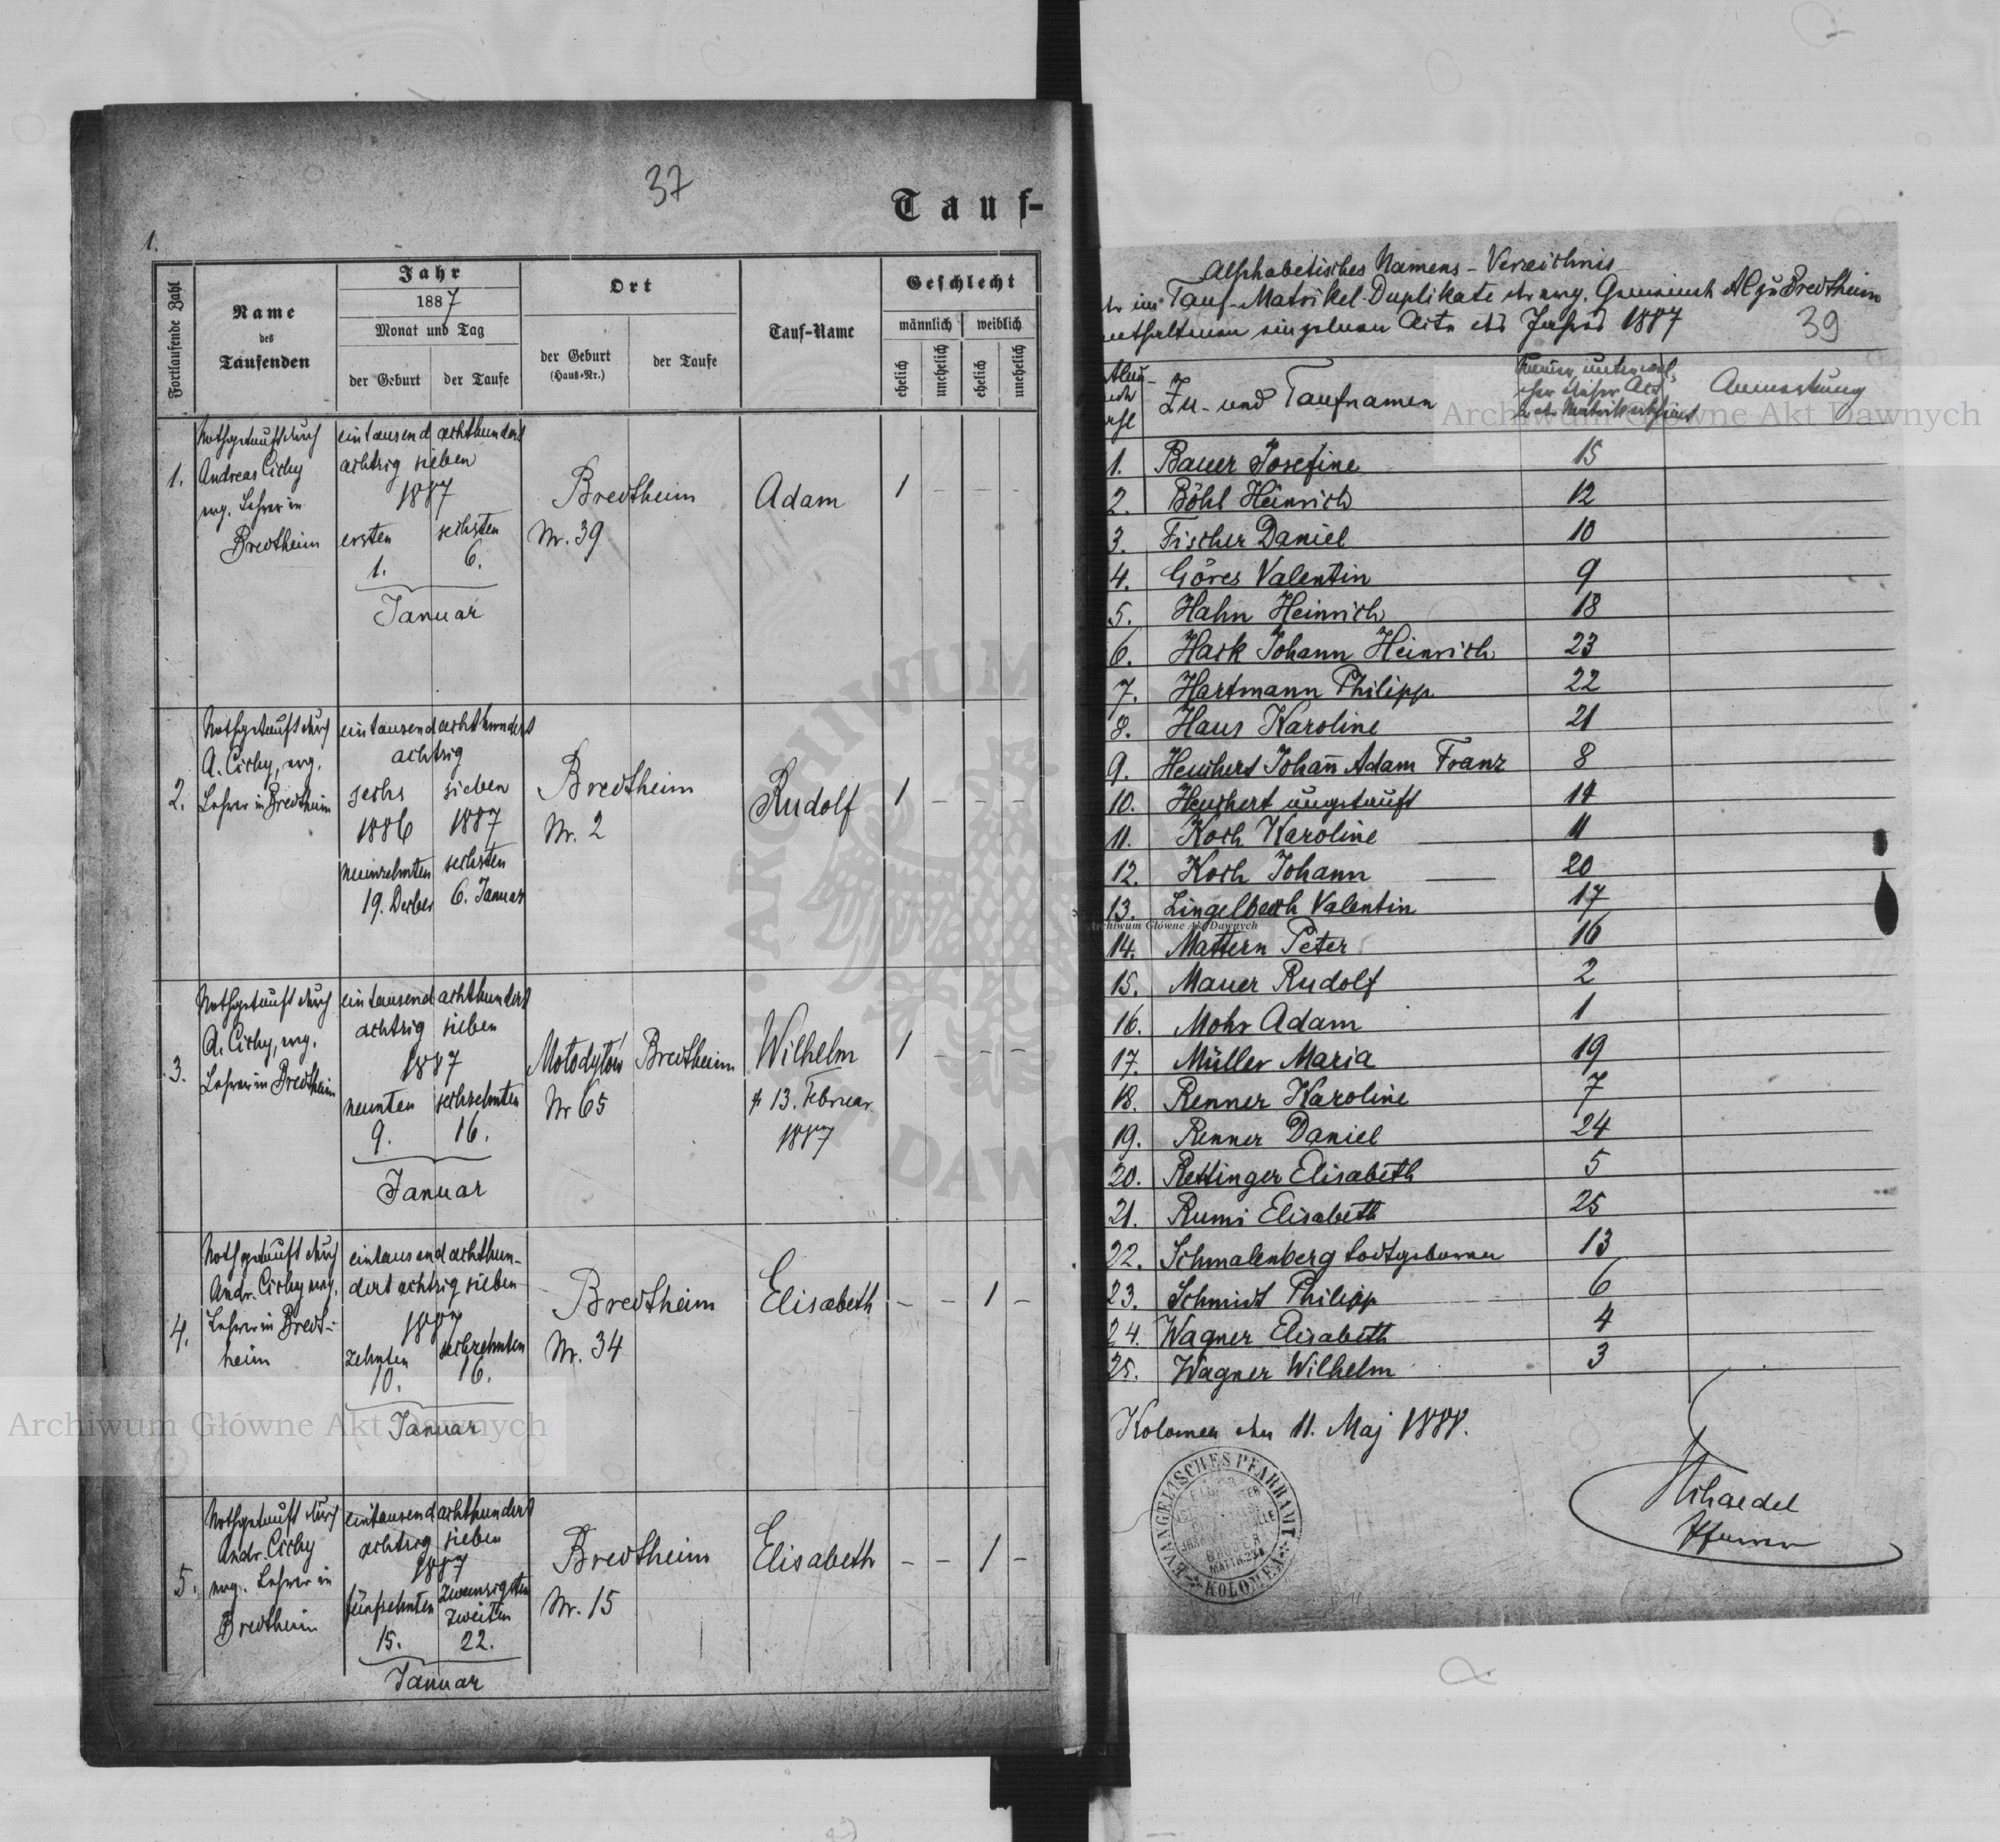 37
Tauf-
1.
Fortlaufende Zahl
Name
des
Taufenden
Jahr
1887
Monat und Tag
der Geburt
der Taufe
Ort
der Geburt
(Haus-Nr.)
der Taufe
Tauf-Name
Geschlecht
männlich
weiblich
ehelich
unehelich
ehelich
unehelich
1.
Nothgetauft durch
Andreas Cichy
evg. Lehrer in
Bredtheim
eintausend achthundert
achtzig sieben
1887
ersten sechsten
1. 6.
Januar
Bredtheim
Nr. 39
Adam
1 – – –
2.
Nothgetauft durch
A. Cichy, evg.
Lehrer in Bredtheim
eintausend achthundert
achtzig
sechs sieben
1886 1887
neunzehnten sechsten
19. Dezber 6. Januar
Bredtheim
Nr. 2
Rudolf
1 – – –
3.
Nothgetauft durch
A. Cichy, evg.
Lehrer in Bredtheim
eintausend achthundert
achtzig sieben
1887
neunten sechzehnten
9. 16.
Januar
Mołodytów Bredtheim
Nr 65
Wilhelm
13. Februar
1887
1 – – –
4.
Nothgetauft durch
Andr. Cichy evg.
Lehrer in Bredt-
heim
eintausend achthun-
dert achtzig sieben
1887
zehnten sechzehnten
10. 16.
Januar
Bredtheim
Nr. 34
Elisabeth
– – 1 –
5.
Nothgetauft durch
Andr. Cichy
evg. Lehrer in
Bredtheim
eintausend achthundert
achtzig sieben
1887
fünfzehnten zwanzigsten
zweiten
15. 22.
Januar
Bredtheim
Nr. 15
Elisabeth
– – 1 –
Alphabetisches Namens-Verzeichnis
der im Tauf-Matrikel-Duplikate der evg. Gemeinde A.C. zu Bredtheim
enthaltenen einzelnen Acte des Jahres 1887
39
Zu- und Taufnamen
Anmerkung
1. Bauer Josefine 15
2. Böhl Heinrich 12
3. Fischer Daniel 10
4. Göres Valentin 9
5. Hahn Heinrich 18
6. Hark Johann Heinrich 23
7. Hartmann Philipp 22
8. Haus Karoline 21
9. Heuchert Johann Adam Franz 8
10. Heuchert ungetauft 14
11. Koch Karoline 11
12. Koch Johann 20
13. Lingelbach Valentin 17
14. Mattern Peter 16
15. Mauer Rudolf 2
16. Mohr Adam 1
17. Müller Maria 19
18. Renner Karoline 7
19. Renner Daniel 24
20. Rettinger Elisabeth 5
21. Rumi Elisabeth 25
22. Schmalenberg todtgeboren 13
23. Schmidt Philipp 6
24. Wagner Elisabeth 4
25. Wagner Wilhelm 3
Kolomea den 11. Maj 1888.
Pfarrer
EVANGELISCHES PFARRAMT
KOLOMEA
Archiwum Główne Akt Dawnych
Archiwum Główne Akt Dawnych
Archiwum Główne Akt Dawnych